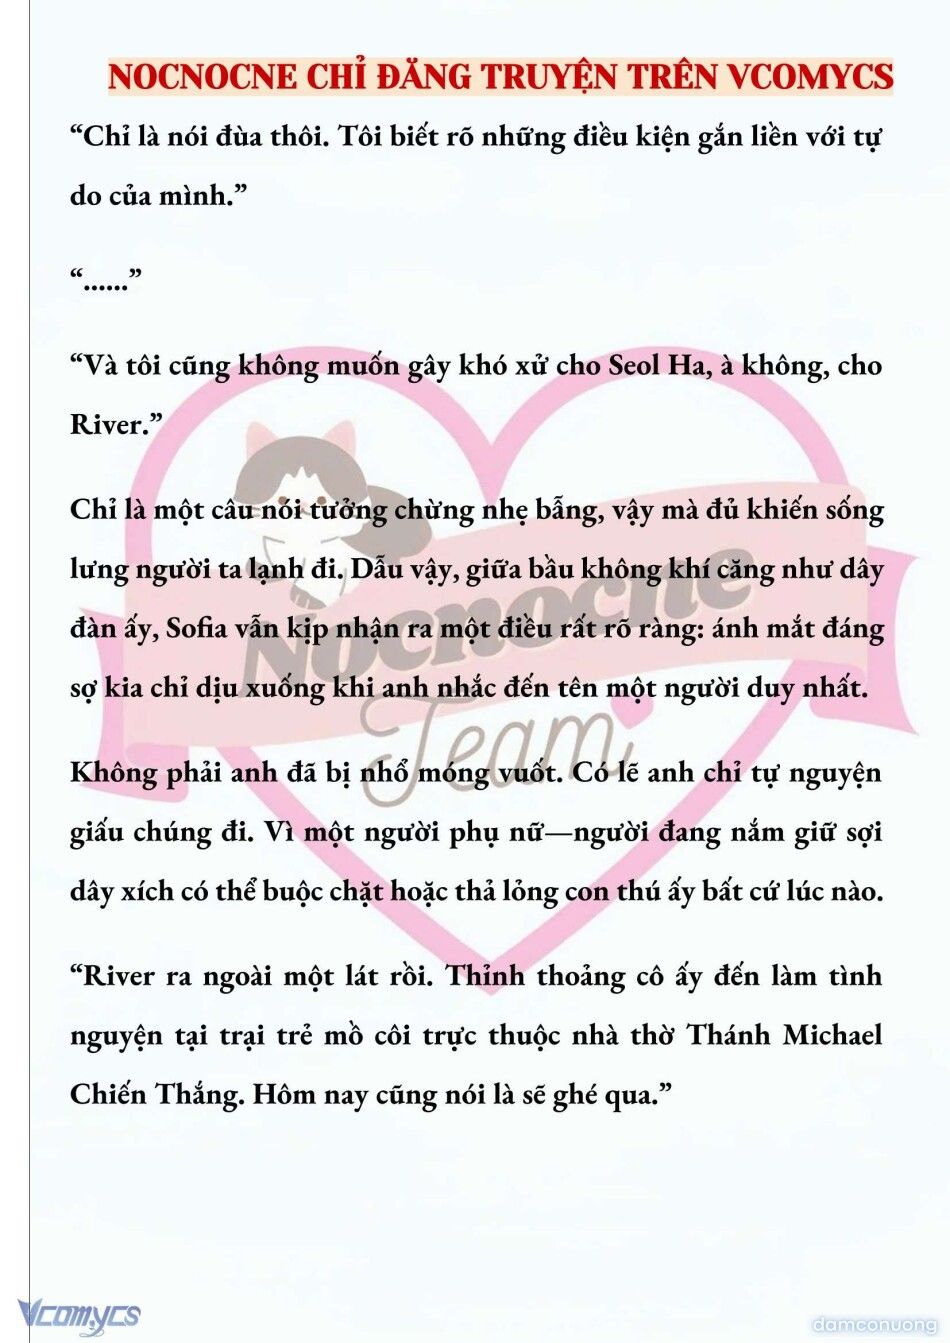 NOCNOCNE CHỈ ĐĂNG TRUYỆN TRÊN VCOMYCS
“Chỉ là nói đùa thôi. Tôi biết rõ những điều kiện gắn liền với tự
do của mình.”
“......”
“Và tôi cũng không muốn gây khó xử cho Seol Ha, à không, cho
River.”
Chỉ là một câu nói tưởng chừng nhẹ bẫng, vậy mà đủ khiến sống
lưng người ta lạnh đi. Dẫu vậy, giữa bầu không khí căng như dây
đàn ấy, Sofia vẫn kịp nhận ra một điều rất rõ ràng: ánh mắt đáng
sợ kia chỉ dịu xuống khi anh nhắc đến tên một người duy nhất.
Không phải anh đã bị nhổ móng vuốt. Có lẽ anh chỉ tự nguyện
giấu chúng đi. Vì một người phụ nữ—người đang nắm giữ sợi
dây xích có thể buộc chặt hoặc thả lỏng con thú ấy bất cứ lúc nào.
“River ra ngoài một lát rồi. Thỉnh thoảng cô ấy đến làm tình
nguyện tại trại trẻ mồ côi trực thuộc nhà thờ Thánh Michael
Chiến Thắng. Hôm nay cũng nói là sẽ ghé qua.”
Nocnocne
Team
Vcomycs
damconuong